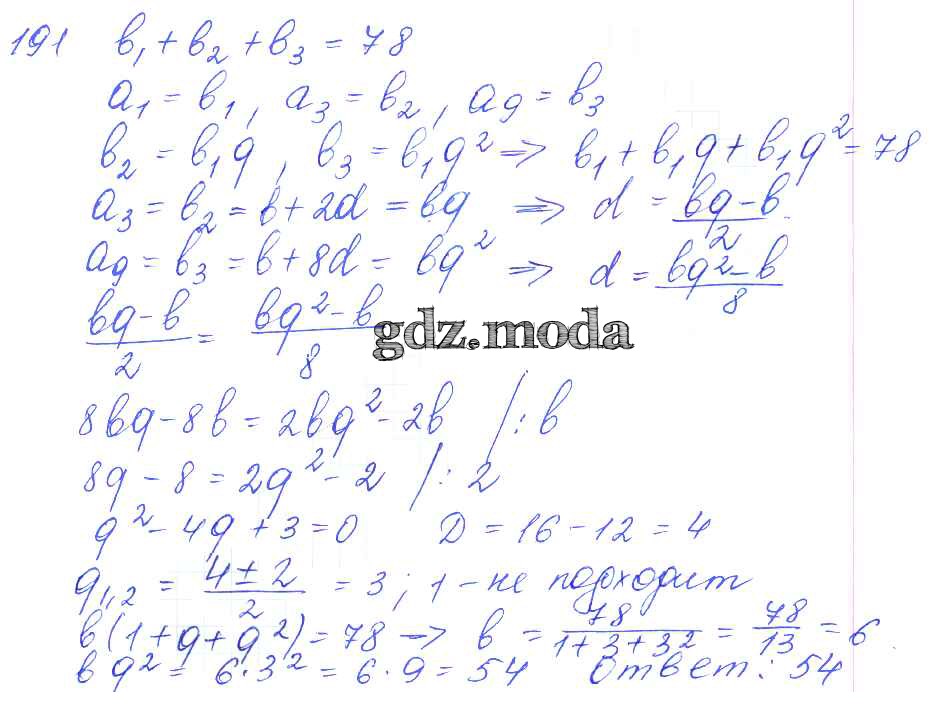 191 b₁ + b₂ + b₃ = 78
a₁ = b₁, a₃ = b₂, a₉ = b₃
b₂ = b₁q, b₃ = b₁q² ⇒ b₁ + b₁q + b₁q² = 78
a₃ = b₂ = b + 2d = bq ⇒ d = (bq − b)/2
a₉ = b₃ = b + 8d = bq² ⇒ d = (bq² − b)/8
(bq − b)/2 = (bq² − b)/8
gdz.moda
8bq − 8b = 2bq² − 2b /: b
8q − 8 = 2q² − 2 /: 2
q² − 4q + 3 = 0 D = 16 − 12 = 4
q₁,₂ = (4 ± 2)/2 = 3; 1 − не подходит
b(1 + q + q²) = 78 → b = 78/(1 + 3 + 3²) = 78/13 = 6
bq² = 6·3² = 6·9 = 54 Ответ: 54